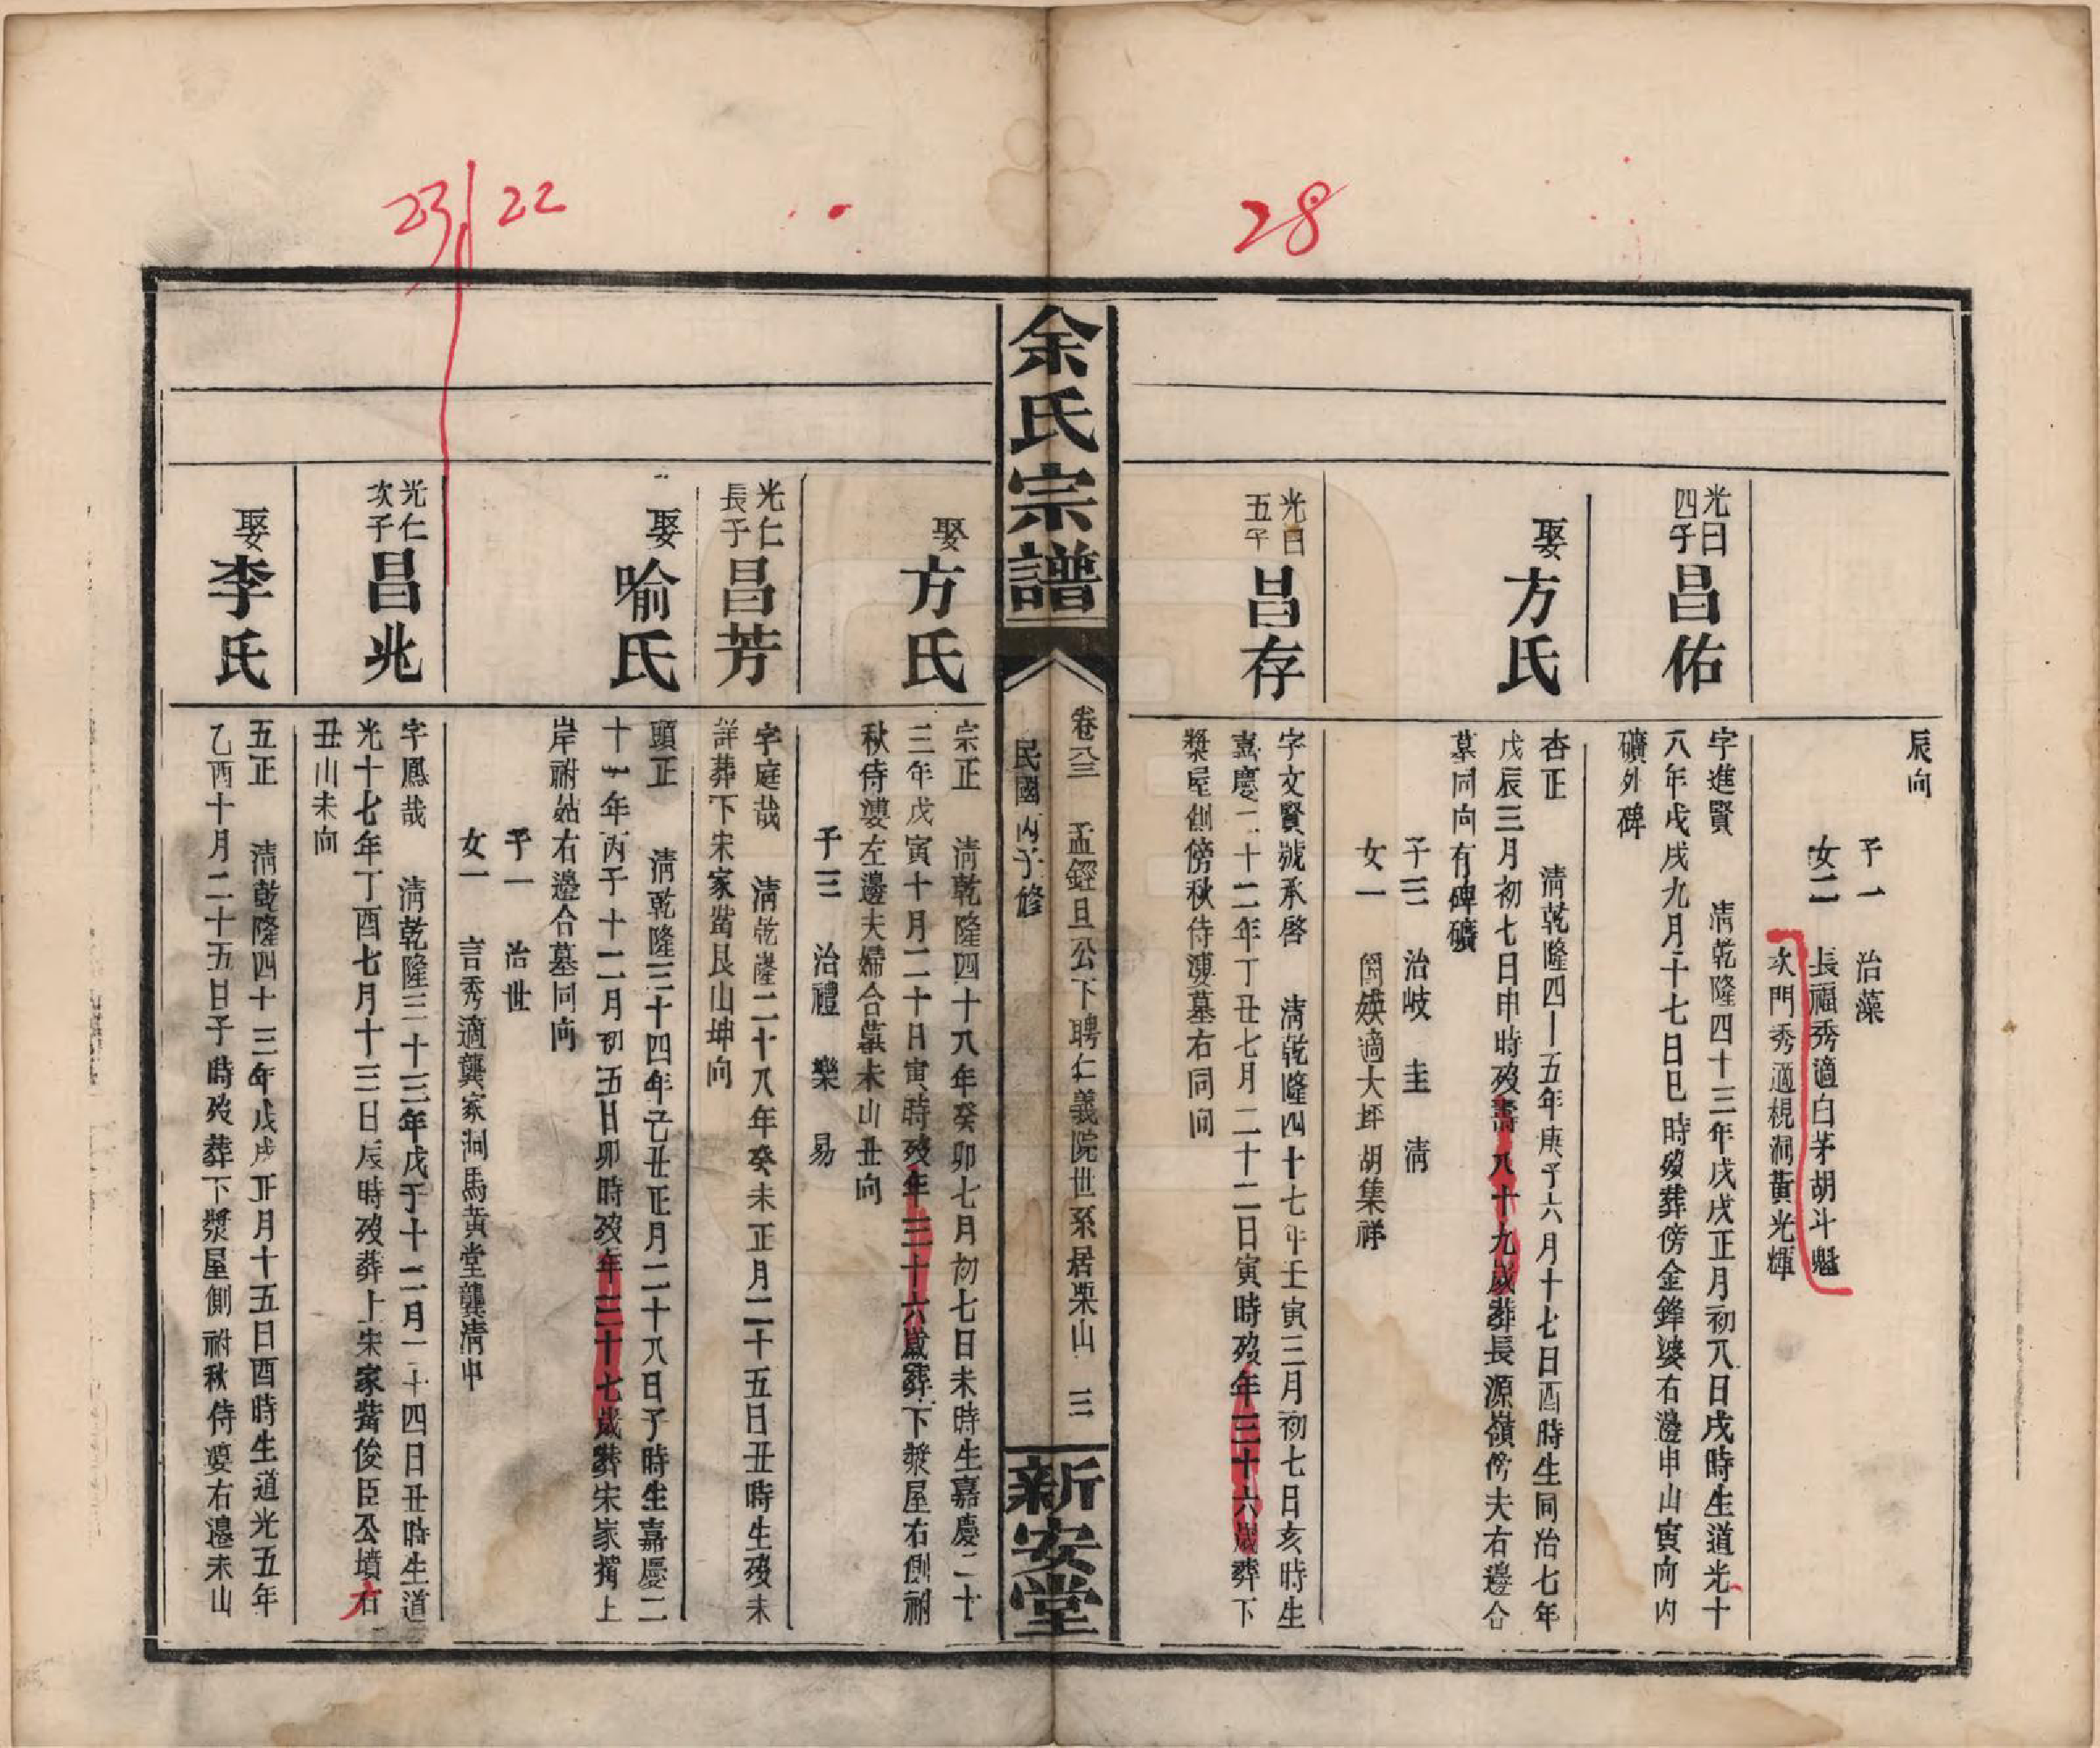 28
22
23
辰向
子一 治藻
女二 長福秀適白茅胡斗魁
次門秀適梘洞黃光輝
光曰四子昌佑
字進賢 清乾隆四十三年戊戌正月初八日戌時生道光十
八年戊戌九月二十七日巳時歿葬傍金鋒婆右邊申山寅向內
礦外碑
娶方氏
杏正 清乾隆四十五年庚子六月十七日酉時生同治七年
戊辰三月初七日申時歿壽八十九歲葬長源嶺傍夫右邊合
墓同向有碑礦
子三 治岐 圭 清
女一 閏嫒適大坪胡集祥
光曰五子昌存
字文賢號承啓 清乾隆四十七年壬寅三月初七日亥時生
嘉慶二十二年丁丑七月二十二日寅時歿年三十六歲葬下
漿屋側傍秋侍婆墓右同向
余氏宗譜
卷三 孟鏗旦公下聘仁義院世系居栗山 三
民國丙子修
新安堂
娶方氏
宗正 清乾隆四十八年癸卯七月初七日未時生嘉慶二十
三年戊寅十月二十日寅時歿年三十六歲葬下漿屋右側祔
秋侍婆左邊夫婦合墓未山丑向
子三 治禮 樂 易
光仁長子昌芳
字庭哉 清乾隆二十八年癸未正月二十五日丑時生歿未
詳葬下宋家嵤艮山坤向
娶喻氏
頭正 清乾隆三十四年己丑正月二十八日子時生嘉慶二
十一年丙子十二月初五日卯時歿年三十七歲葬宋家嵤上
岸祔姑右邊合墓同向
子一 治世
女一 言秀適龔家洞馬黃堂龔清申
光仁次子昌兆
字鳳哉 清乾隆三十三年戊子十二月二十四日丑時生道
光十七年丁酉七月十三日辰時歿葬上宋家嵤俊臣公墳右
丑山未向
娶李氏
五正 清乾隆四十三年戊戌正月十五日酉時生道光五年
乙酉十月二十五日子時歿葬下漿屋側祔秋侍婆右邊未山